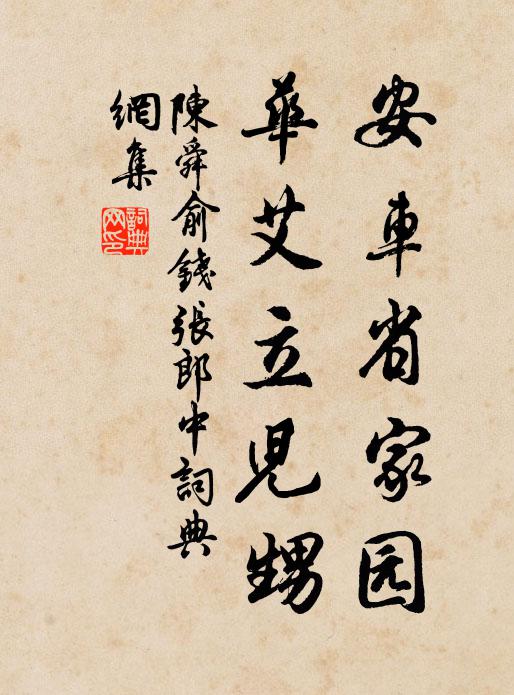 安車省家园
華艾立児甥
陳舜俞錢張郎中詞典
網集
詞典
网印